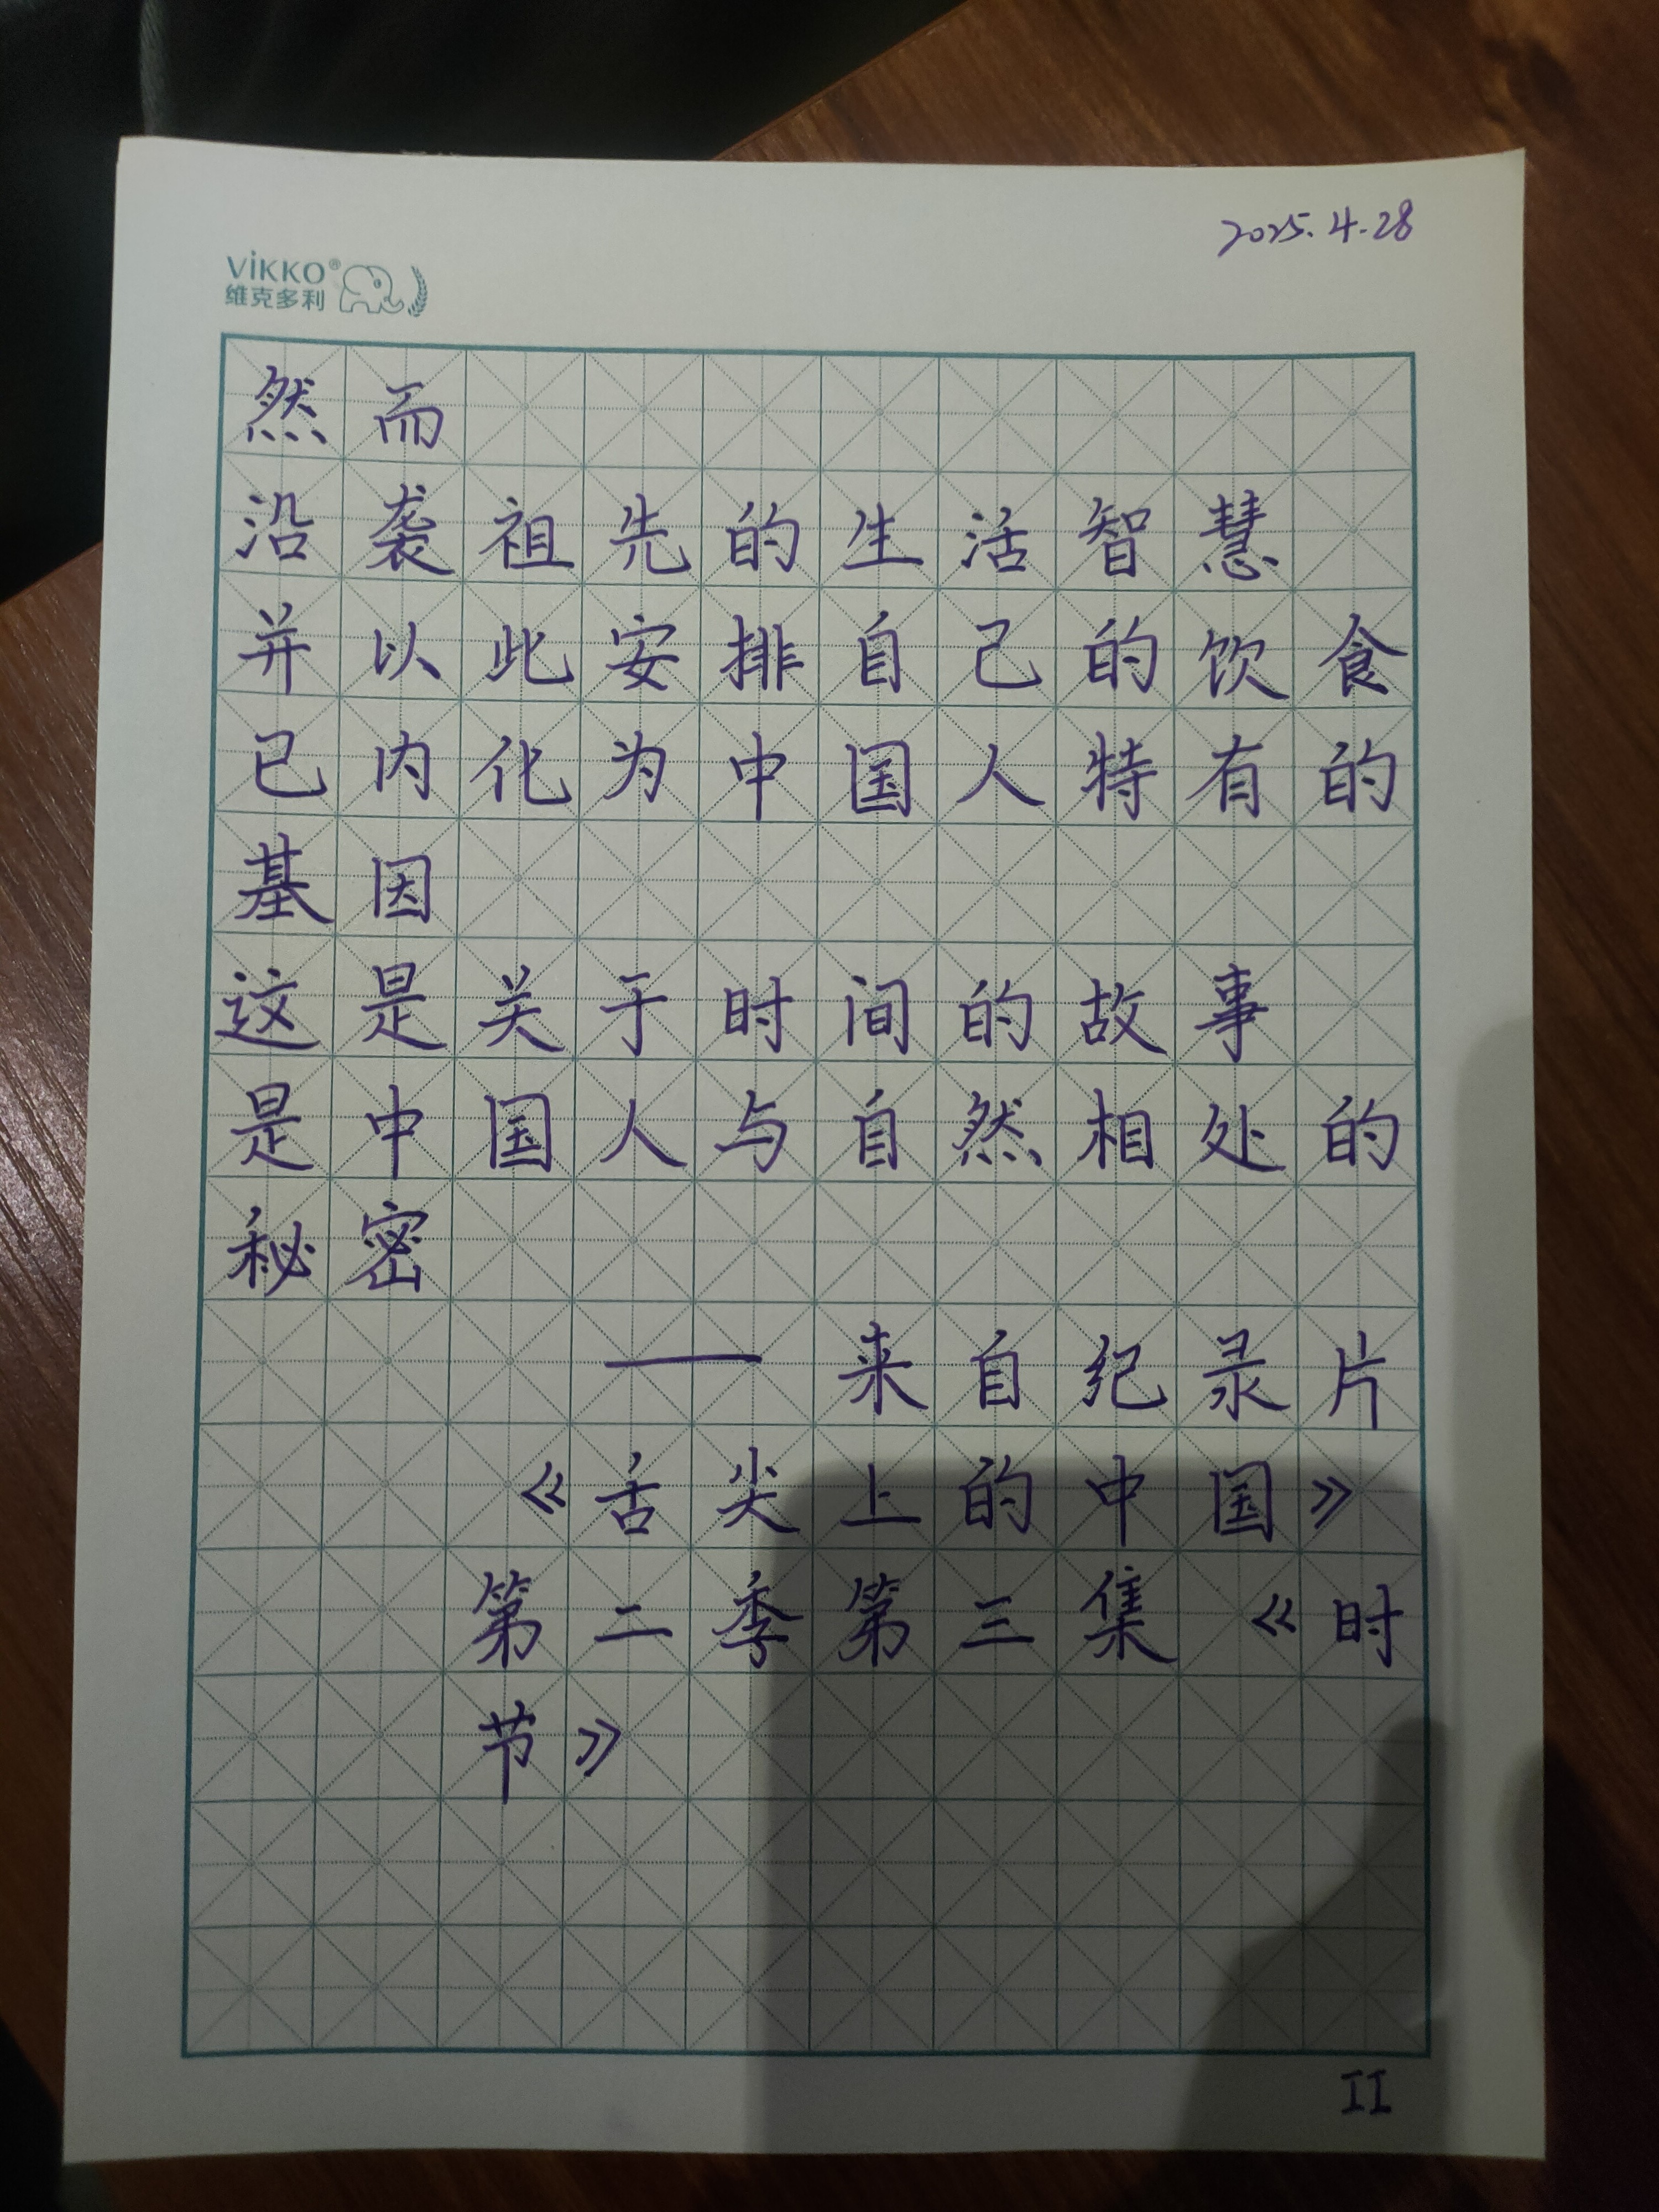 2025.4.28
ViKKO®
维克多利
然而
沿袭祖先的生活智慧
并以此安排自己的饮食
已内化为中国人特有的
基因
这是关于时间的故事
是中国人与自然相处的
秘密
——来自纪录片
《舌尖上的中国》
第二季第三集《时
节》
II